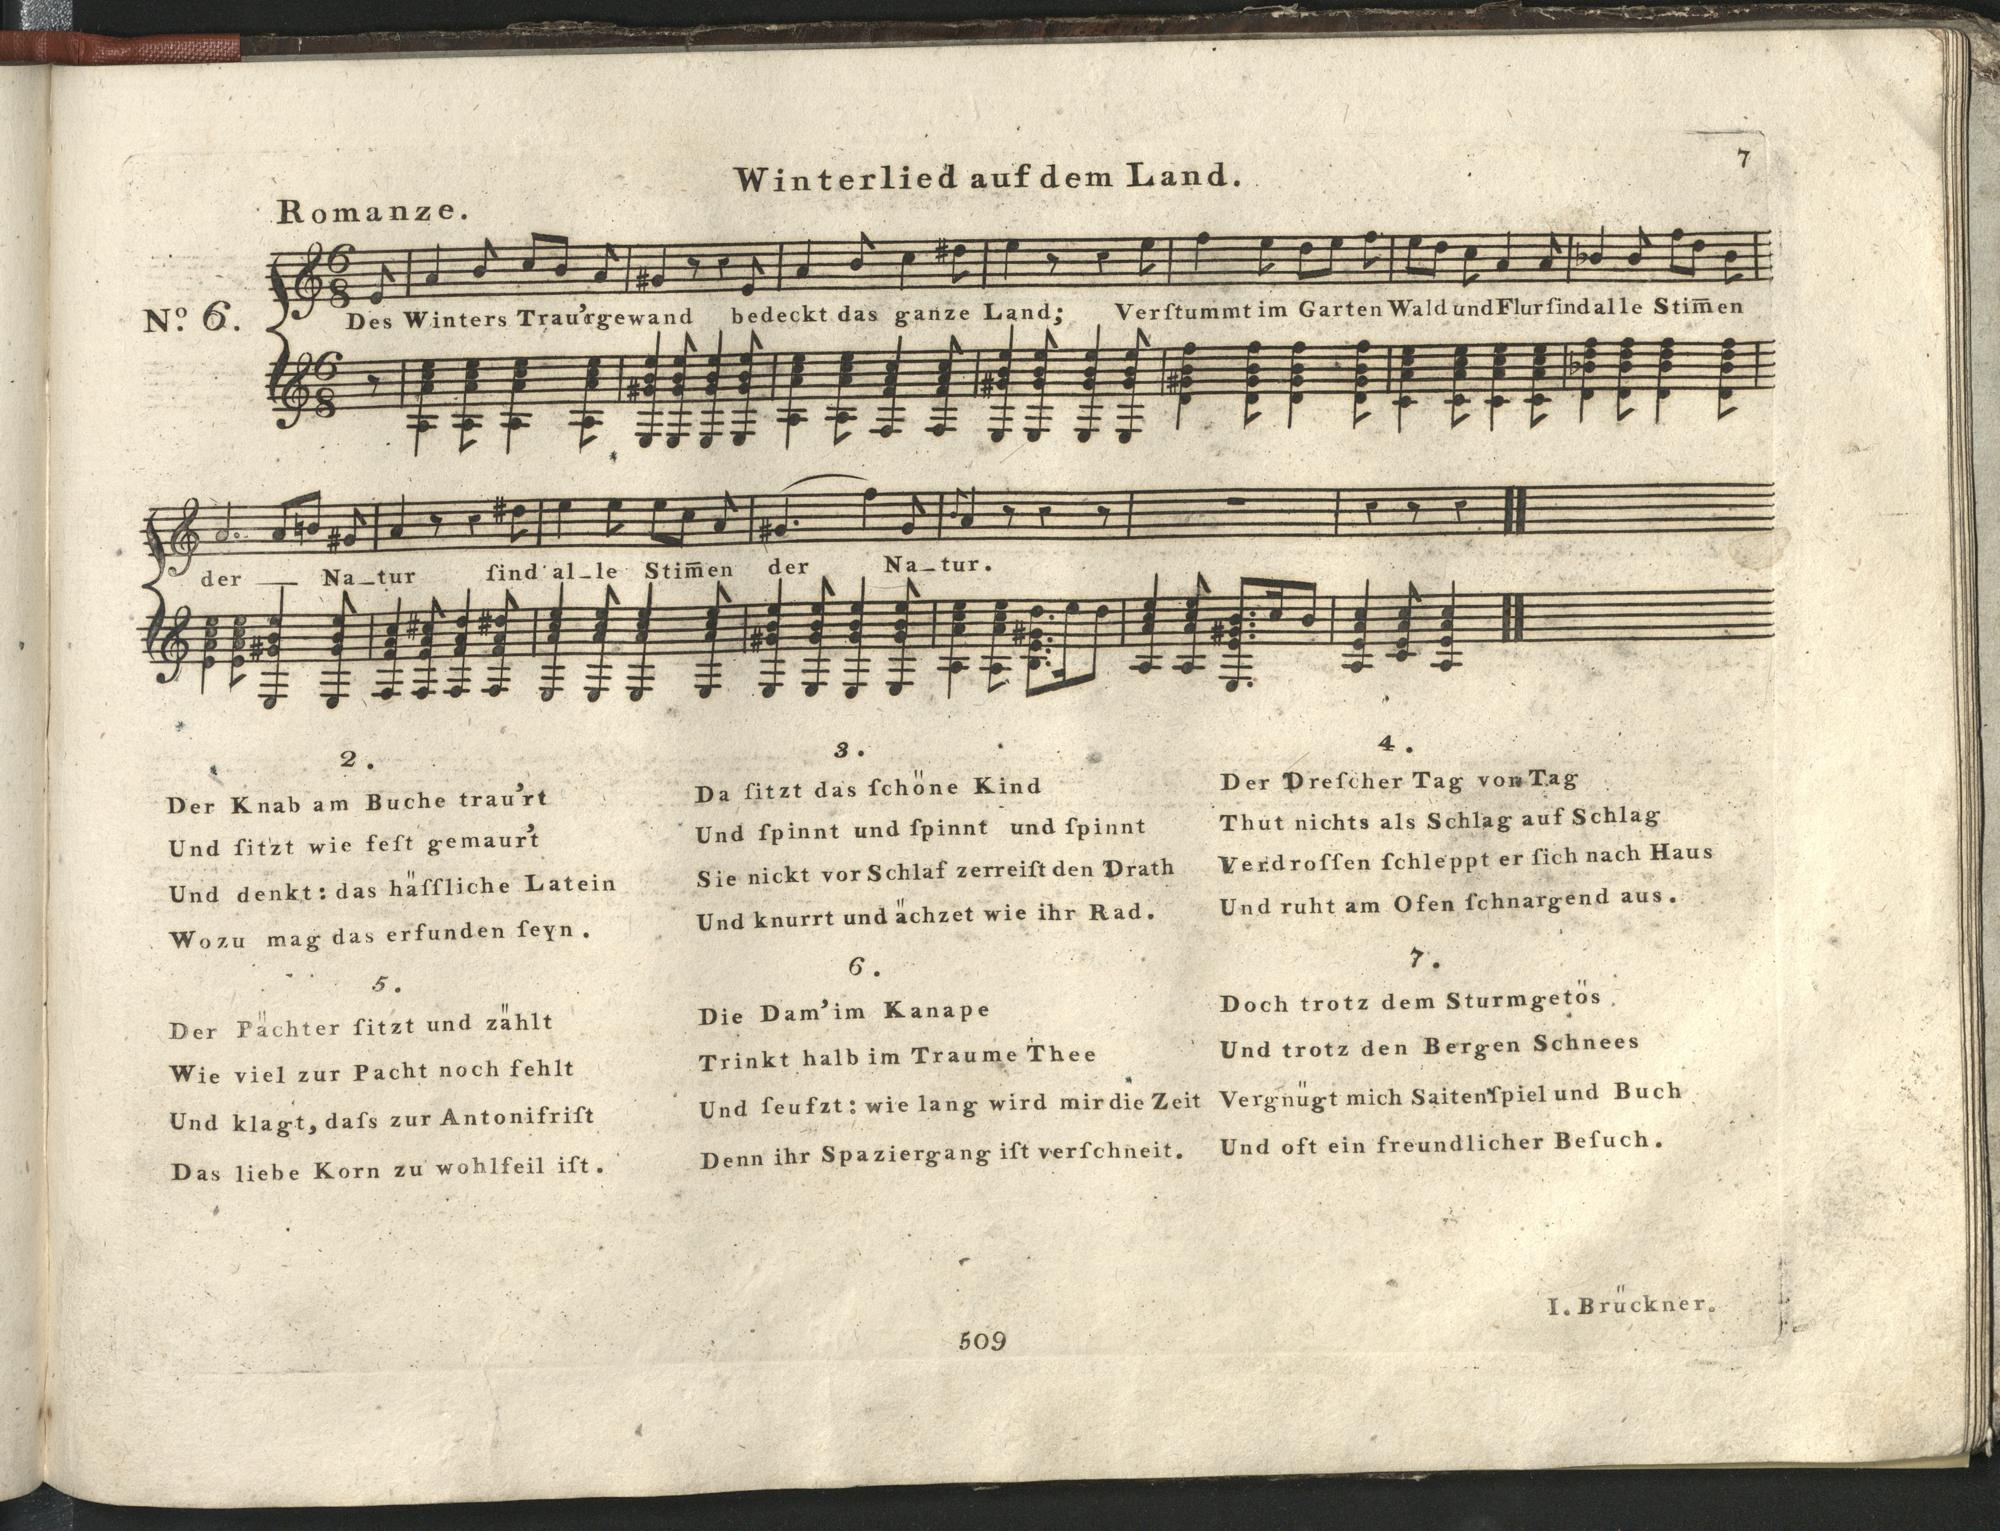 7
Winterlied auf dem Land.
Romanze.
Nº 6.
Des Winters Trau'rgewand bedeckt das ganze Land; Verſtummt im Garten Wald und Flur ſind alle Stim̅en
der — Na_tur ſind al_le Stim̅en der Na_tur.
2.
Der Knab am Buche trau'rt
Und ſitzt wie feſt gemaur't
Und denkt: das häſſliche Latein
Wozu mag das erfunden ſeyn.
3.
Da ſitzt das ſchöne Kind
Und ſpinnt und ſpinnt und ſpinnt
Sie nickt vor Schlaf zerreiſt den Drath
Und knurrt und ächzet wie ihr Rad.
4.
Der Dreſcher Tag von Tag
Thut nichts als Schlag auf Schlag
Verdroſſen ſchleppt er ſich nach Haus
Und ruht am Ofen ſchnargend aus.
5.
Der Pächter ſitzt und zählt
Wie viel zur Pacht noch fehlt
Und klagt, daſs zur Antonifriſt
Das liebe Korn zu wohlfeil iſt.
6.
Die Dam' im Kanape
Trinkt halb im Traume Thee
Und ſeufzt: wie lang wird mir die Zeit
Denn ihr Spaziergang iſt verſchneit.
7.
Doch trotz dem Sturmgetös
Und trotz den Bergen Schnees
Vergnügt mich Saitenſpiel und Buch
Und oft ein freundlicher Beſuch.
I. Brückner.
509